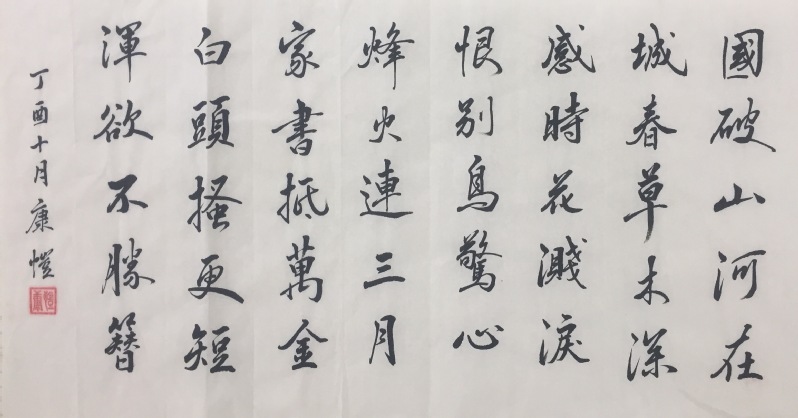 國破山河在
城春草木深
感時花濺淚
恨別鳥驚心
烽火連三月
家書抵萬金
白頭搔更短
渾欲不勝簪
丁酉十月康愷